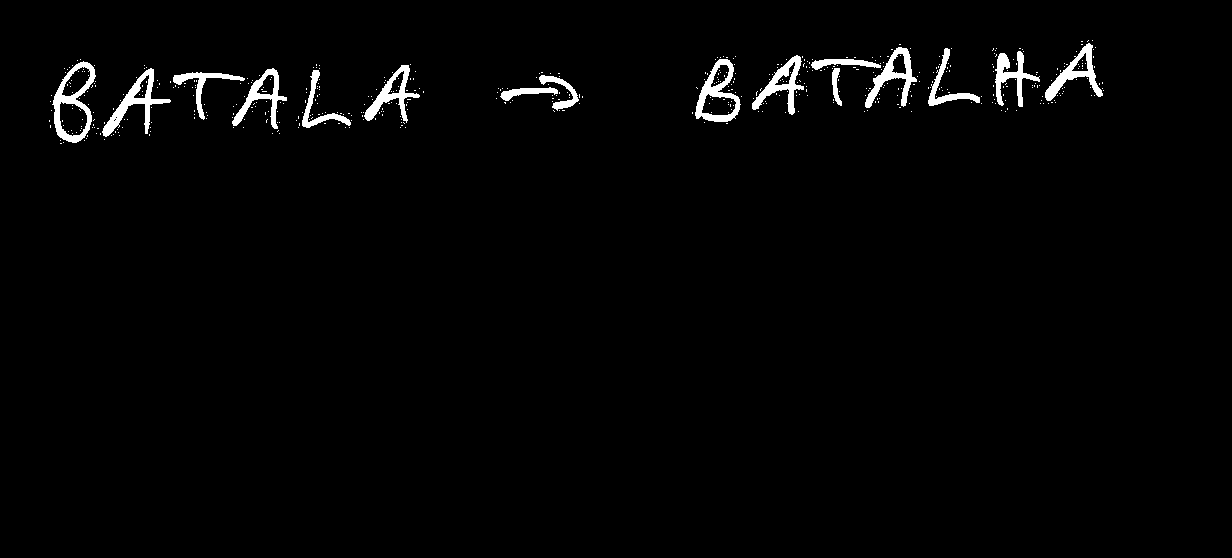 BATALA → BATALHA